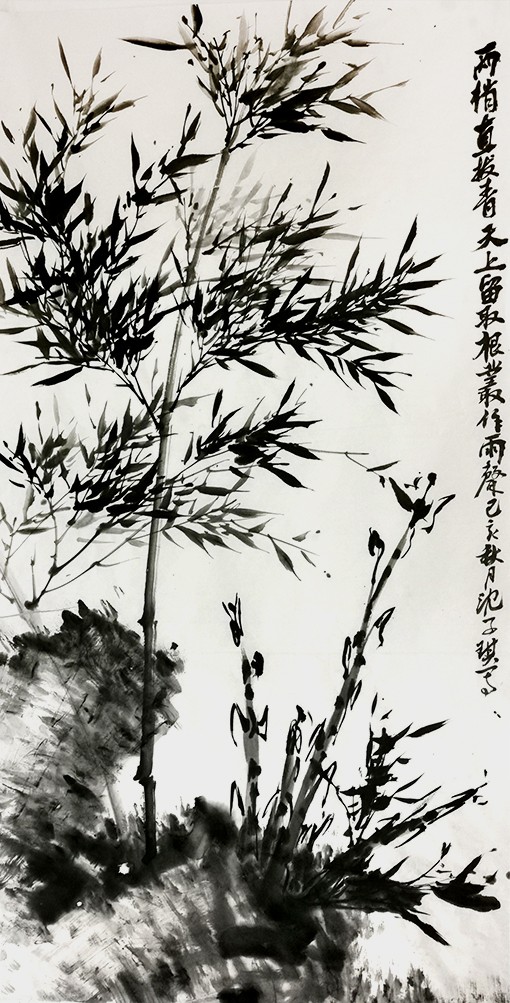 两梢直拔青天上留取根丛作雨声己亥秋月沈子琪写